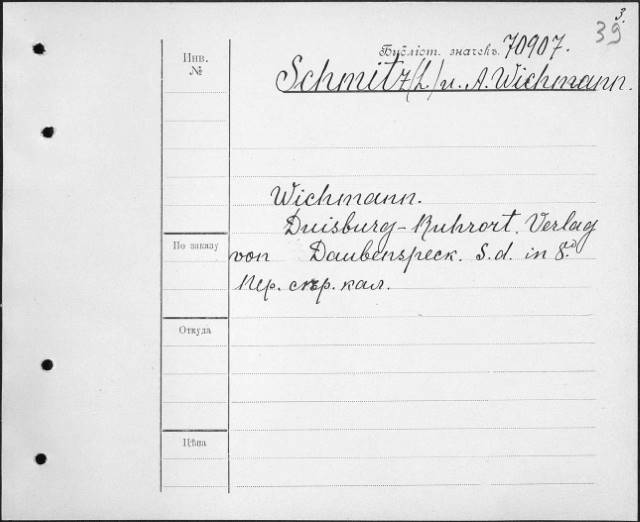 3.
39
Библіот. значекъ. 70907.
Инв.
№
Schmitz (L.) u. A. Wichmann.
Wichmann.
Duisburg-Ruhrort. Verlag
По заказу
von Daubenspeck. S.d. in 8º
Пер. скр. кал.
Откуда
Цѣна